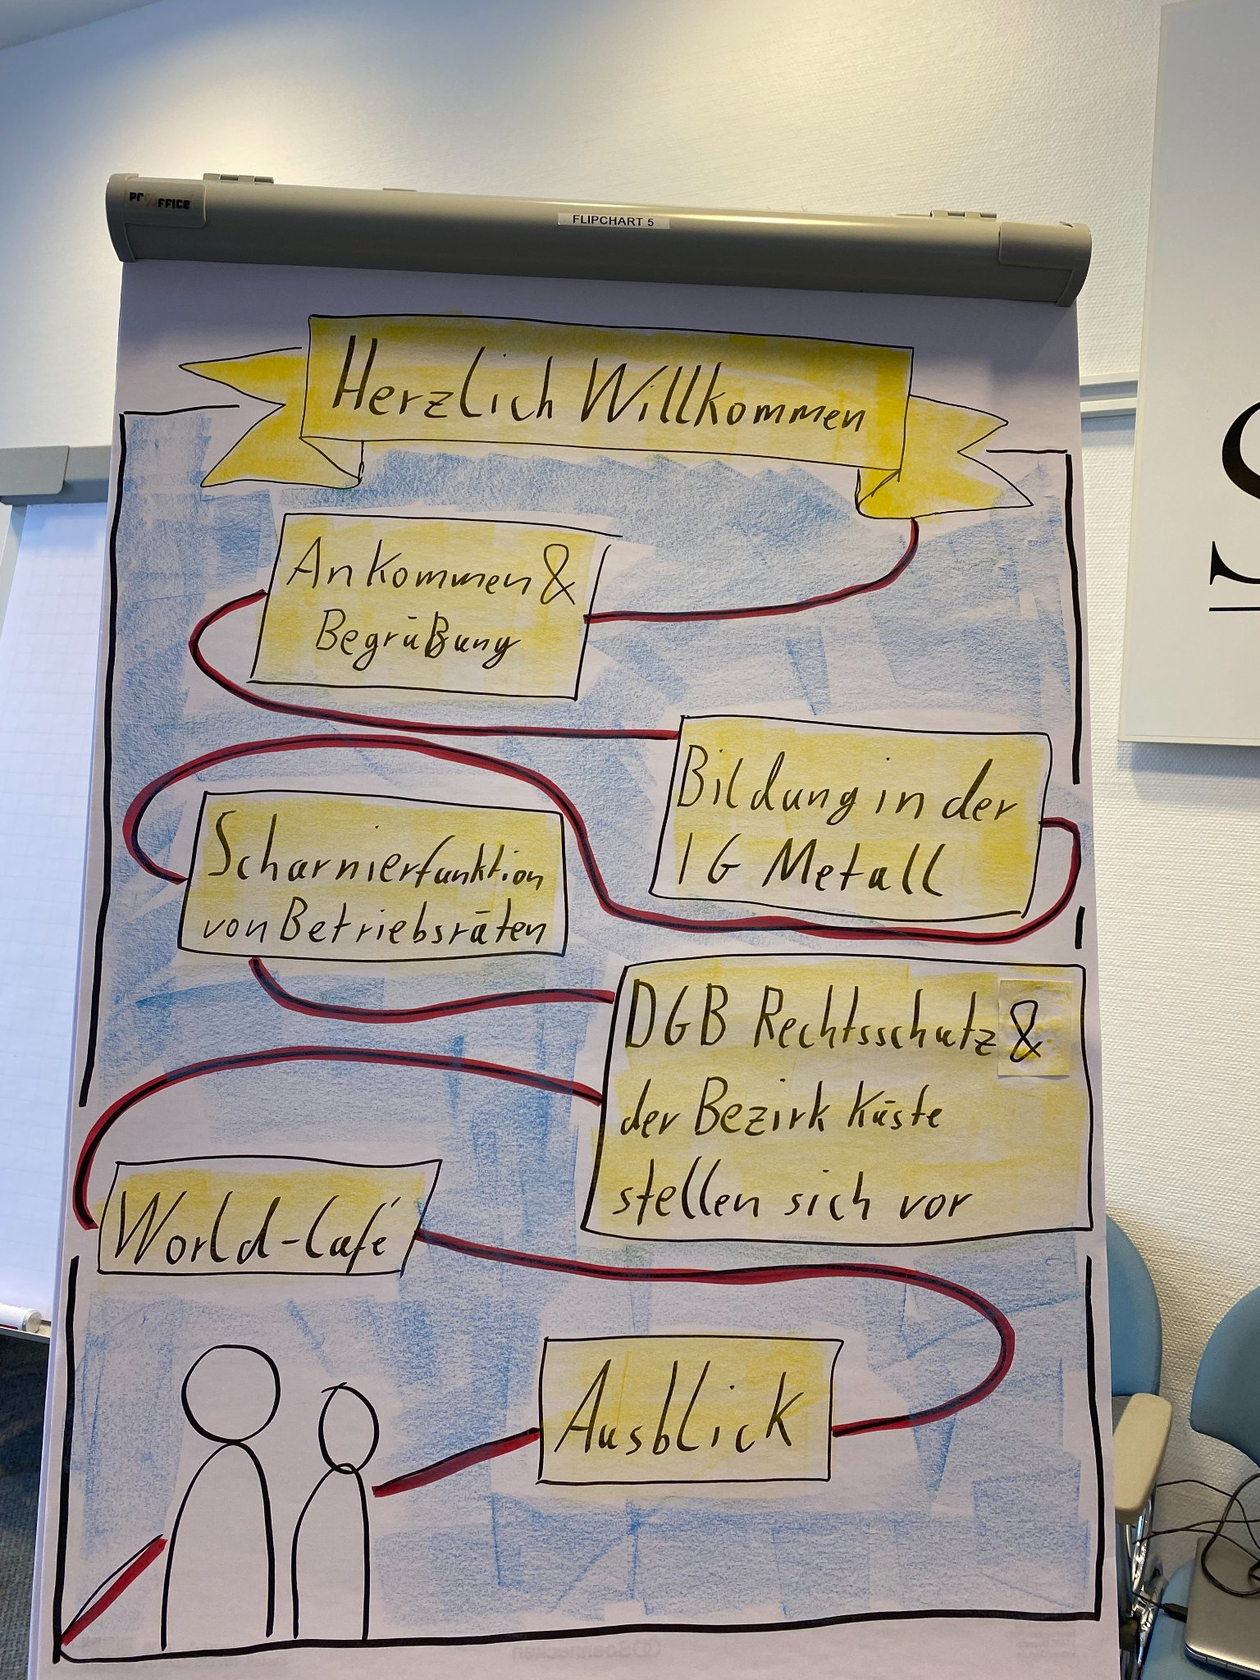 FLIPCHART 5
Herzlich Willkommen
Ankommen &
Begrüßung
Bildung in der
IG Metall
Scharnierfunktion
von Betriebsräten
DGB Rechtsschutz &
der Bezirk Küste
stellen sich vor
World-Café
Ausblick